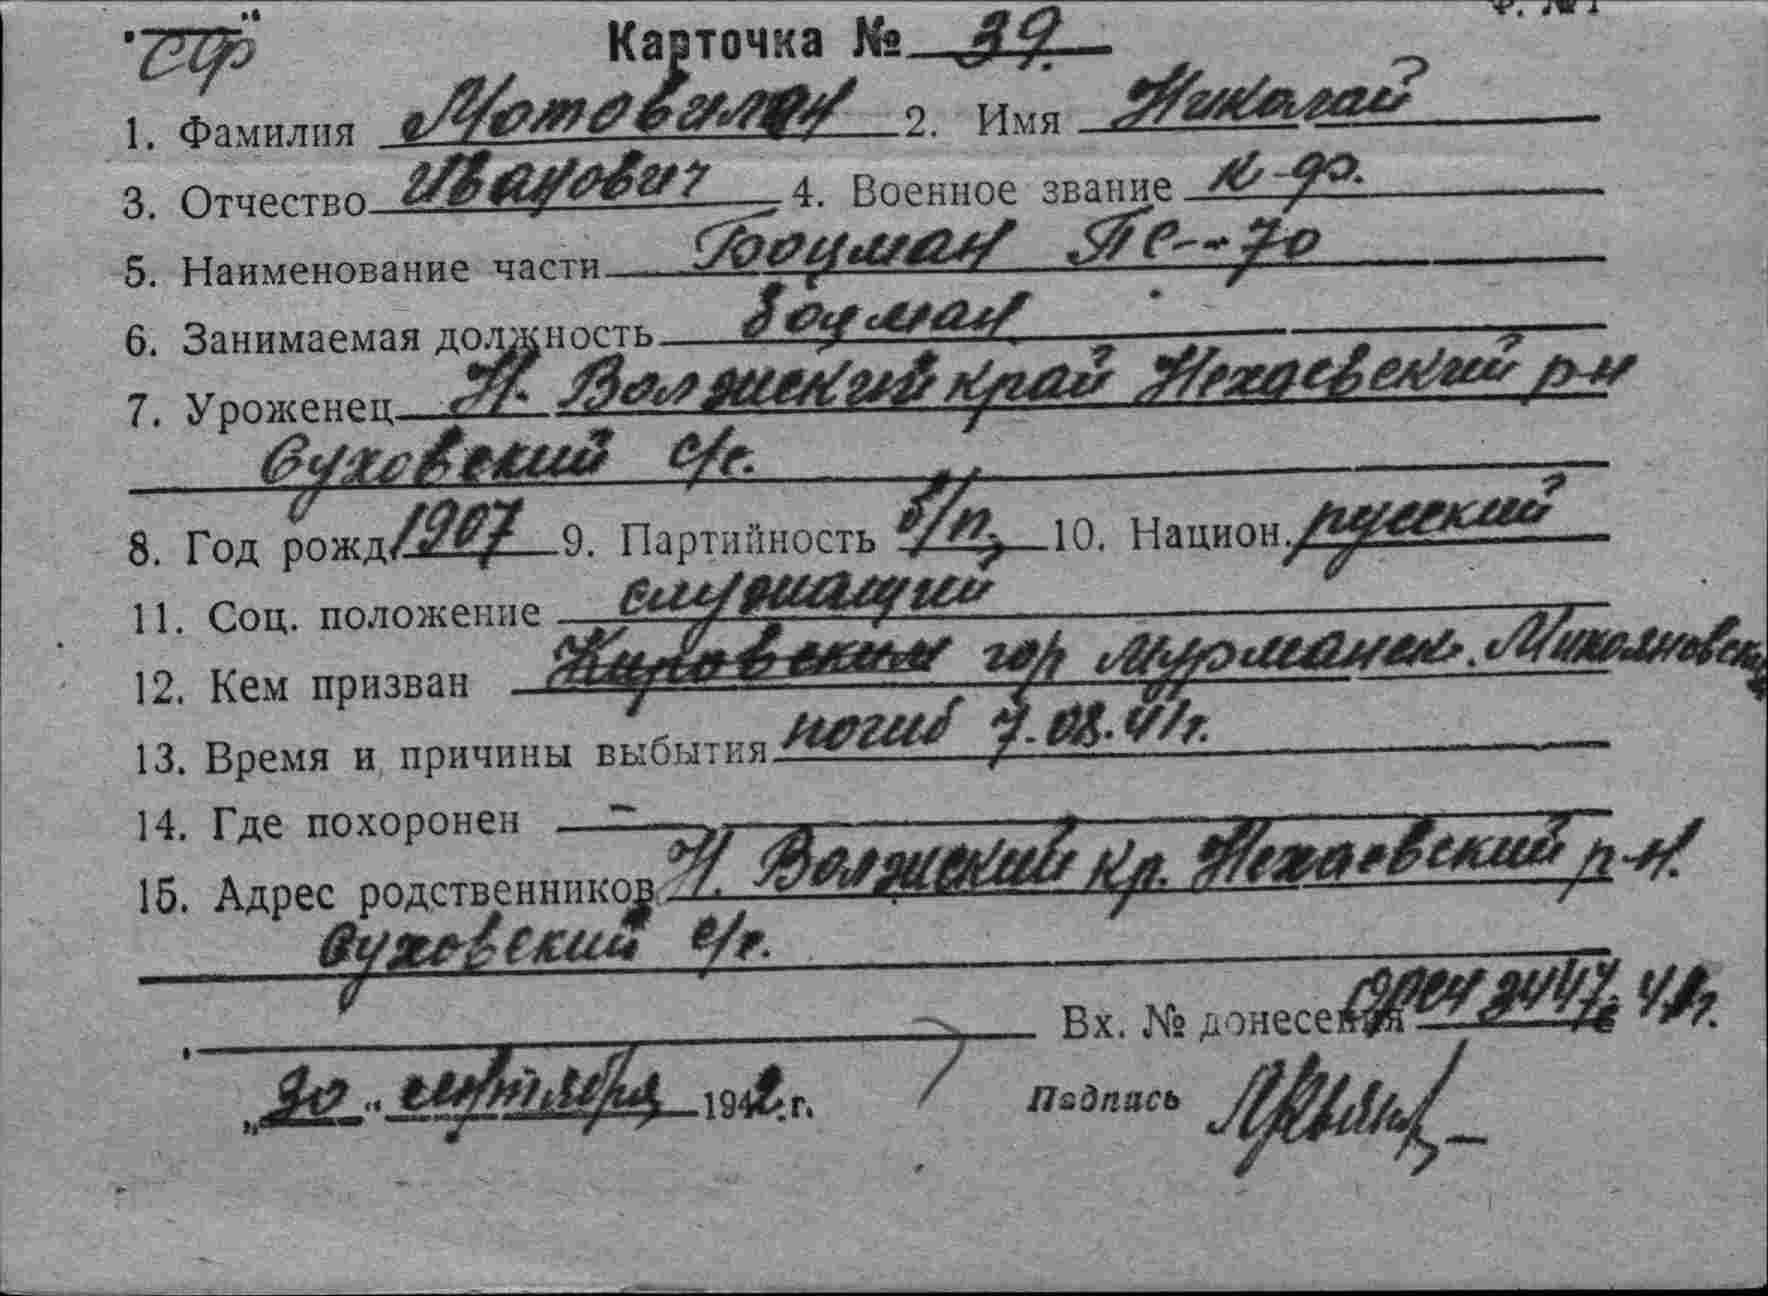 "СФ"
Ф. № 1
Карточка № 39.
1. Фамилия Мотовилин 2. Имя Николай
3. Отчество Иванович 4. Военное звание к-ф.
5. Наименование части Боцман ПС--70
6. Занимаемая должность боцман
7. Уроженец Н. Волжский край Нехаевский р-н
Суховский с/с.
8. Год рожд. 1907 9. Партийность б/п, 10. Национ. русский
11. Соц. положение служащий
12. Кем призван Кировским гор Мурманск. Микояновским
13. Время и причины выбытия погиб 7.08.41г.
14. Где похоронен —
15. Адрес родственников Н. Волжский кр. Нехаевский р-н.
Суховский с/с.
Вх. № донесения 2447
„30" сентября 1942 г. Подпись